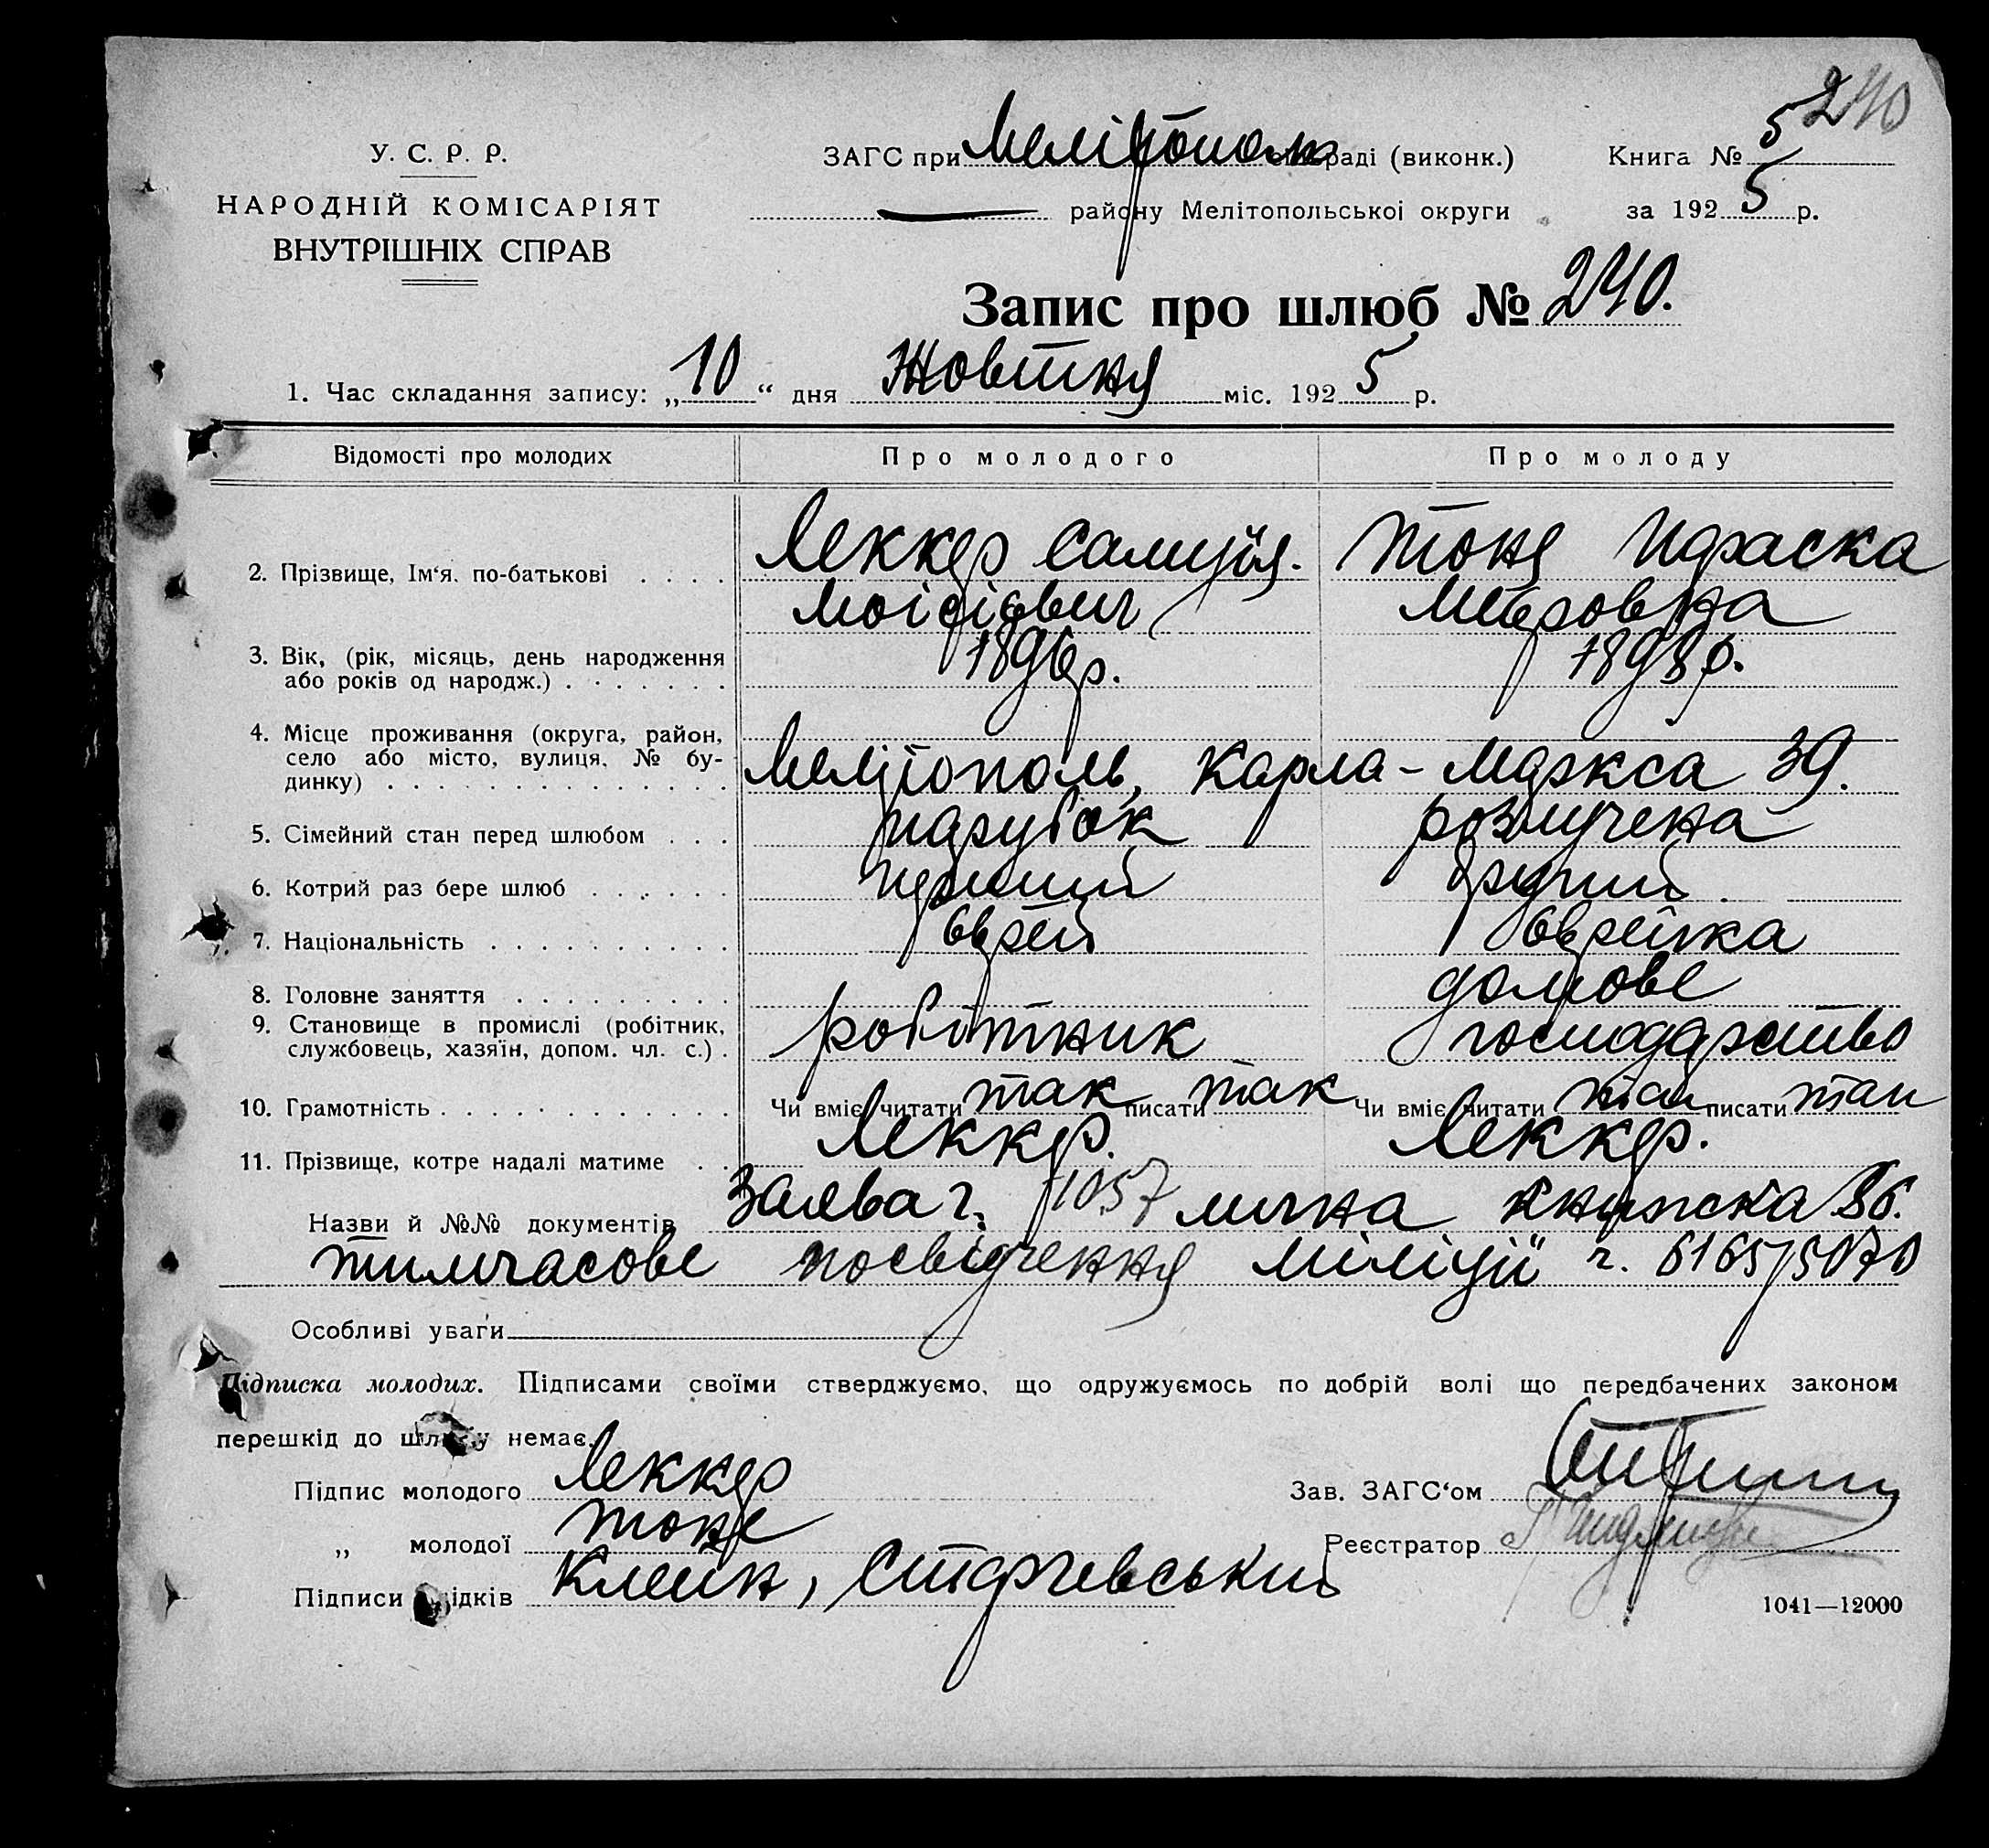 240
У. С. Р. Р.
НАРОДНІЙ КОМІСАРІЯТ
ВНУТРІШНІХ СПРАВ
ЗАГС при Мелітополь раді (виконк.)
Книга № 5
району Мелітопольської округи
за 192 5 р.
Запис про шлюб № 240.
1. Час складання запису: „ 10 “ дня Жовтня міс. 192 5 р.
Відомості про молодих Про молодого Про молоду
2. Прізвище, Ім‘я. по-батькові . . . . Леккер Самуїл. Моісієвич
Меєровна
3. Вік, (рік, місяць, день народження
або років од народж.) . . . . . . . 1896р. 1898р.
4. Місце проживання (округа, район,
село або місто, вулиця, № бу-
динку) . . . . . . . . . . . . . . Мелітополь, Карла-Маркса 39.
5. Сімейний стан перед шлюбом . . . парубок розлучена
6. Котрий раз бере шлюб . . . . . . перший другий
7. Національність . . . . . . . . . . єврей єврейка
8. Головне заняття . . . . . . . . . домове
9. Становище в промислі (робітник,
службовець, хазяїн, допом. чл. с.) . робітник господарство
10. Грамотність . . . . . . . . . . . . Чи вміє читати так писати так Чи вміє читати так писати так
11. Прізвище, котре надалі матиме . . Леккер. Леккер.
Назви й №№ документів Заява ч. 1057 лична книжка 86.
тимчасове посвідчення міліції ч. 6165/5070
Особливі уваги
Підписка молодих. Підписами своїми стверджуємо, що одружуємось по добрій волі що передбачених законом
перешкід до шлюбу немає.
Підпис молодого Леккер
Зав. ЗАГС‘ом
„ молодої
Реєстратор
Підписи свідків Клейн, Старчевський
1041—12000